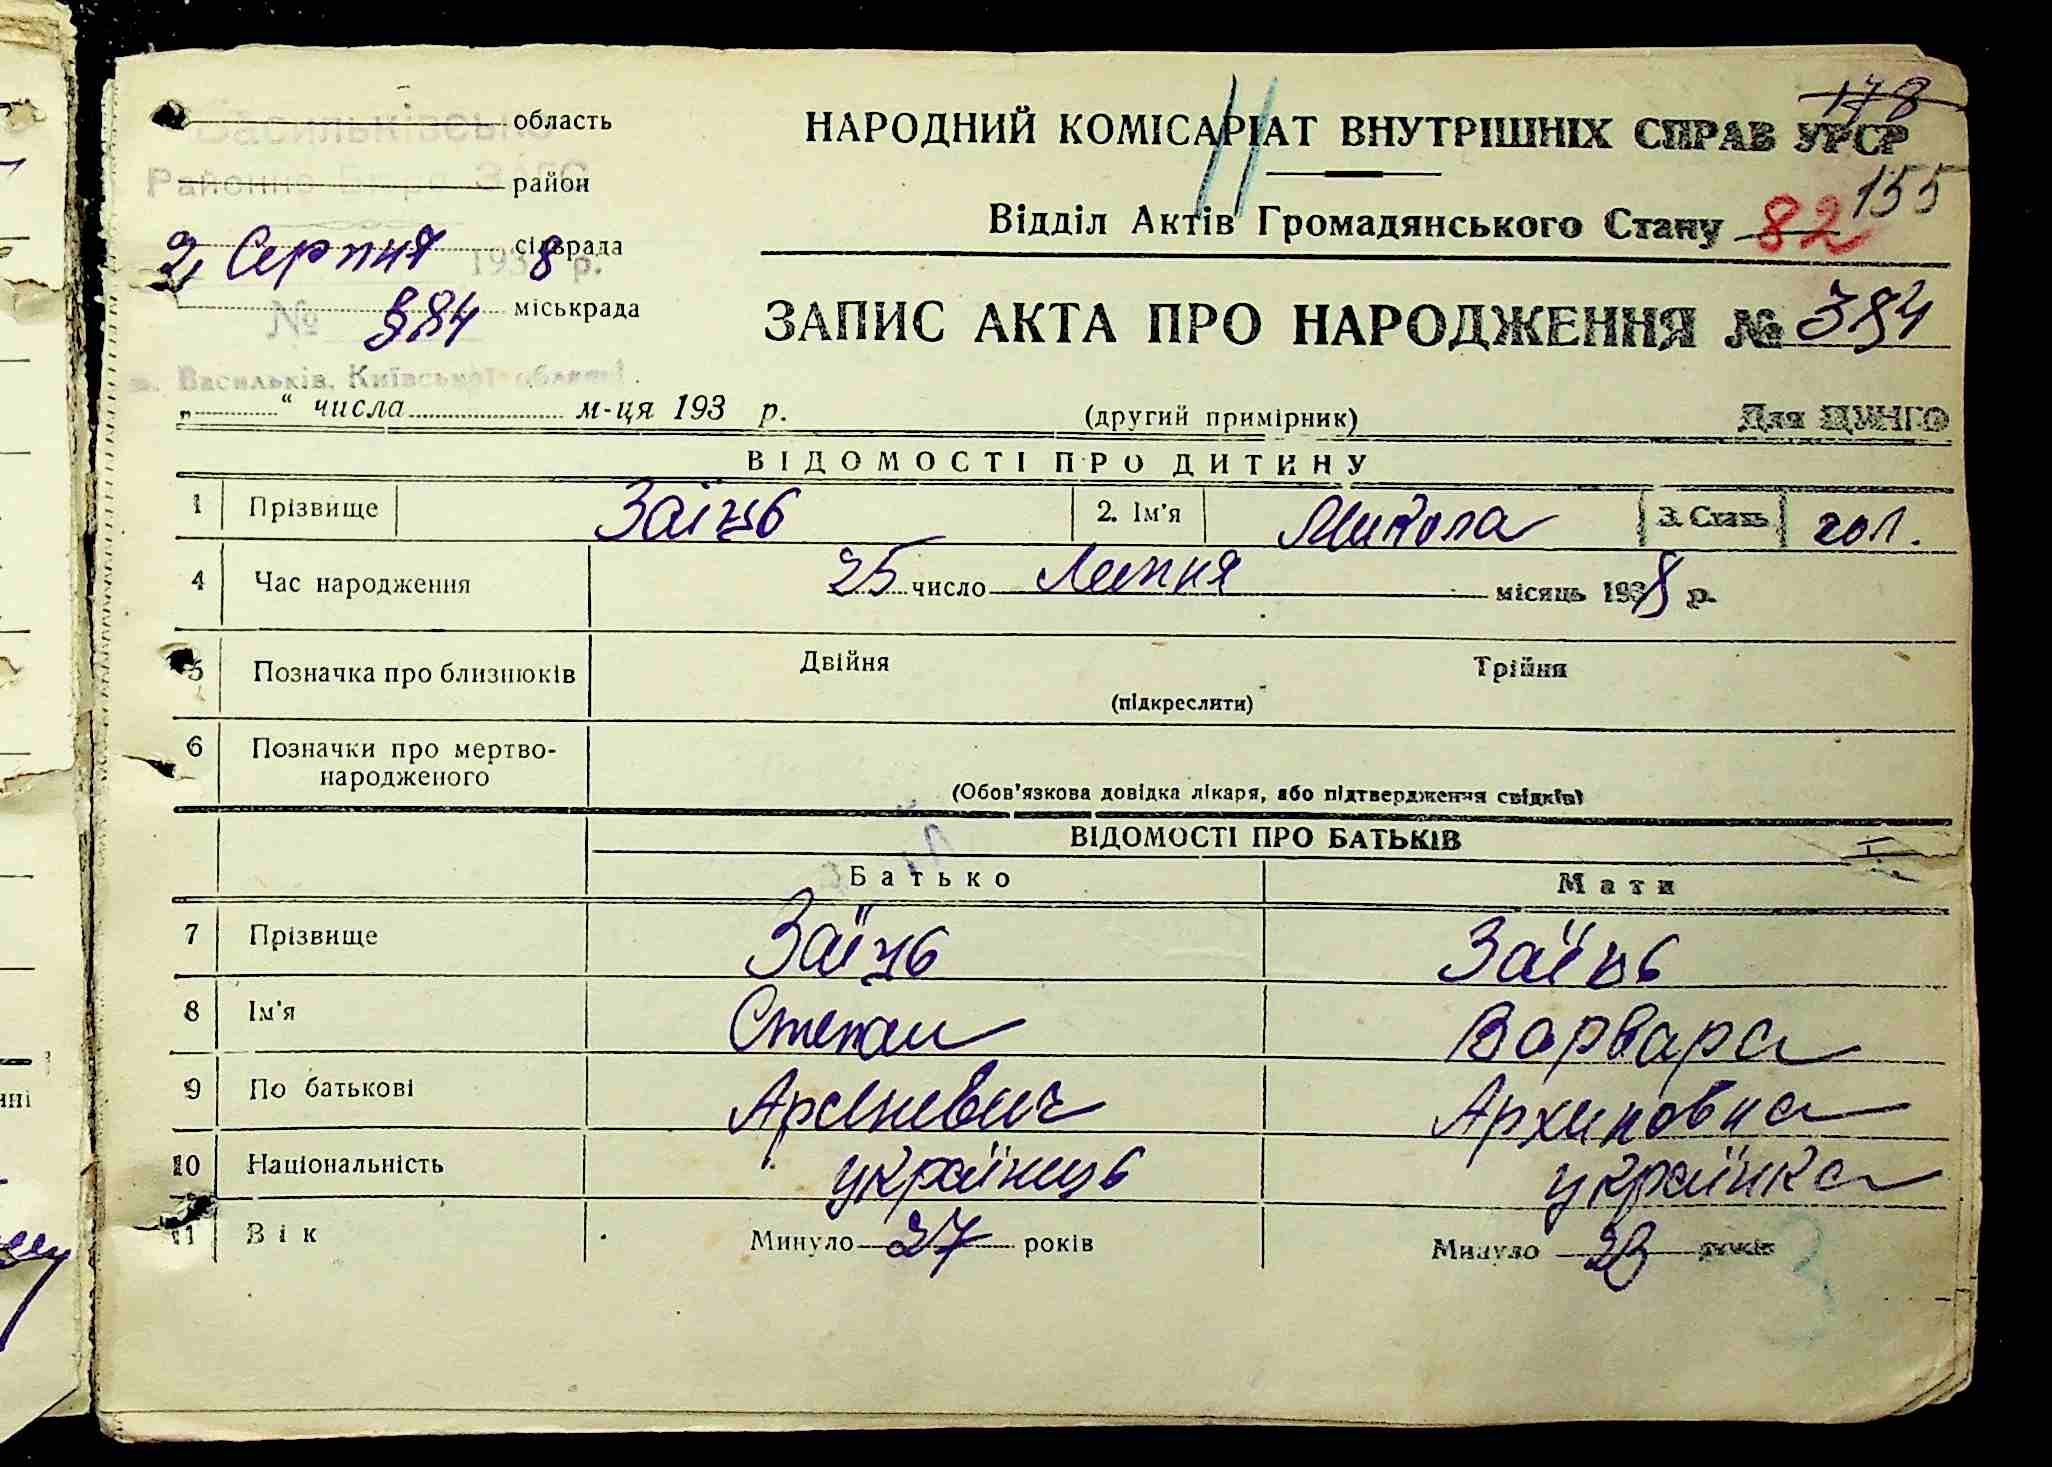 178
Васильківське область
НАРОДНИЙ КОМІСАРІАТ ВНУТРІШНІХ СПРАВ УРСР
Районне Бюро ЗАГС район
155
Відділ Актів Громадянського Стану 82
2 Серпня 1938 р. сільрада
№ 384 міськрада
ЗАПИС АКТА ПРО НАРОДЖЕННЯ № 384
м. Васильків, Київської області
„ “ числа м-ця 193 р.
(другий примірник)
Для ЦУНГО
ВІДОМОСТІ ПРО ДИТИНУ
1 Прізвище Заїць 2. Ім'я Микола 3. Стать чол.
4 Час народження 25 число Липня місяць 1938 р.
5 Позначка про близнюків Двійня Трійня
(підкреслити)
6 Позначки про мертво-
народженого
(Обов'язкова довідка лікаря, або підтвердження свідків)
ВІДОМОСТІ ПРО БАТЬКІВ
Батько Мати
7 Прізвище Заїць Заїць
8 Ім'я Степан Варвара
9 По батькові Арсеневич Архиповна
10 Національність українець українка
11 Вік Минуло 27 років Минуло років
3